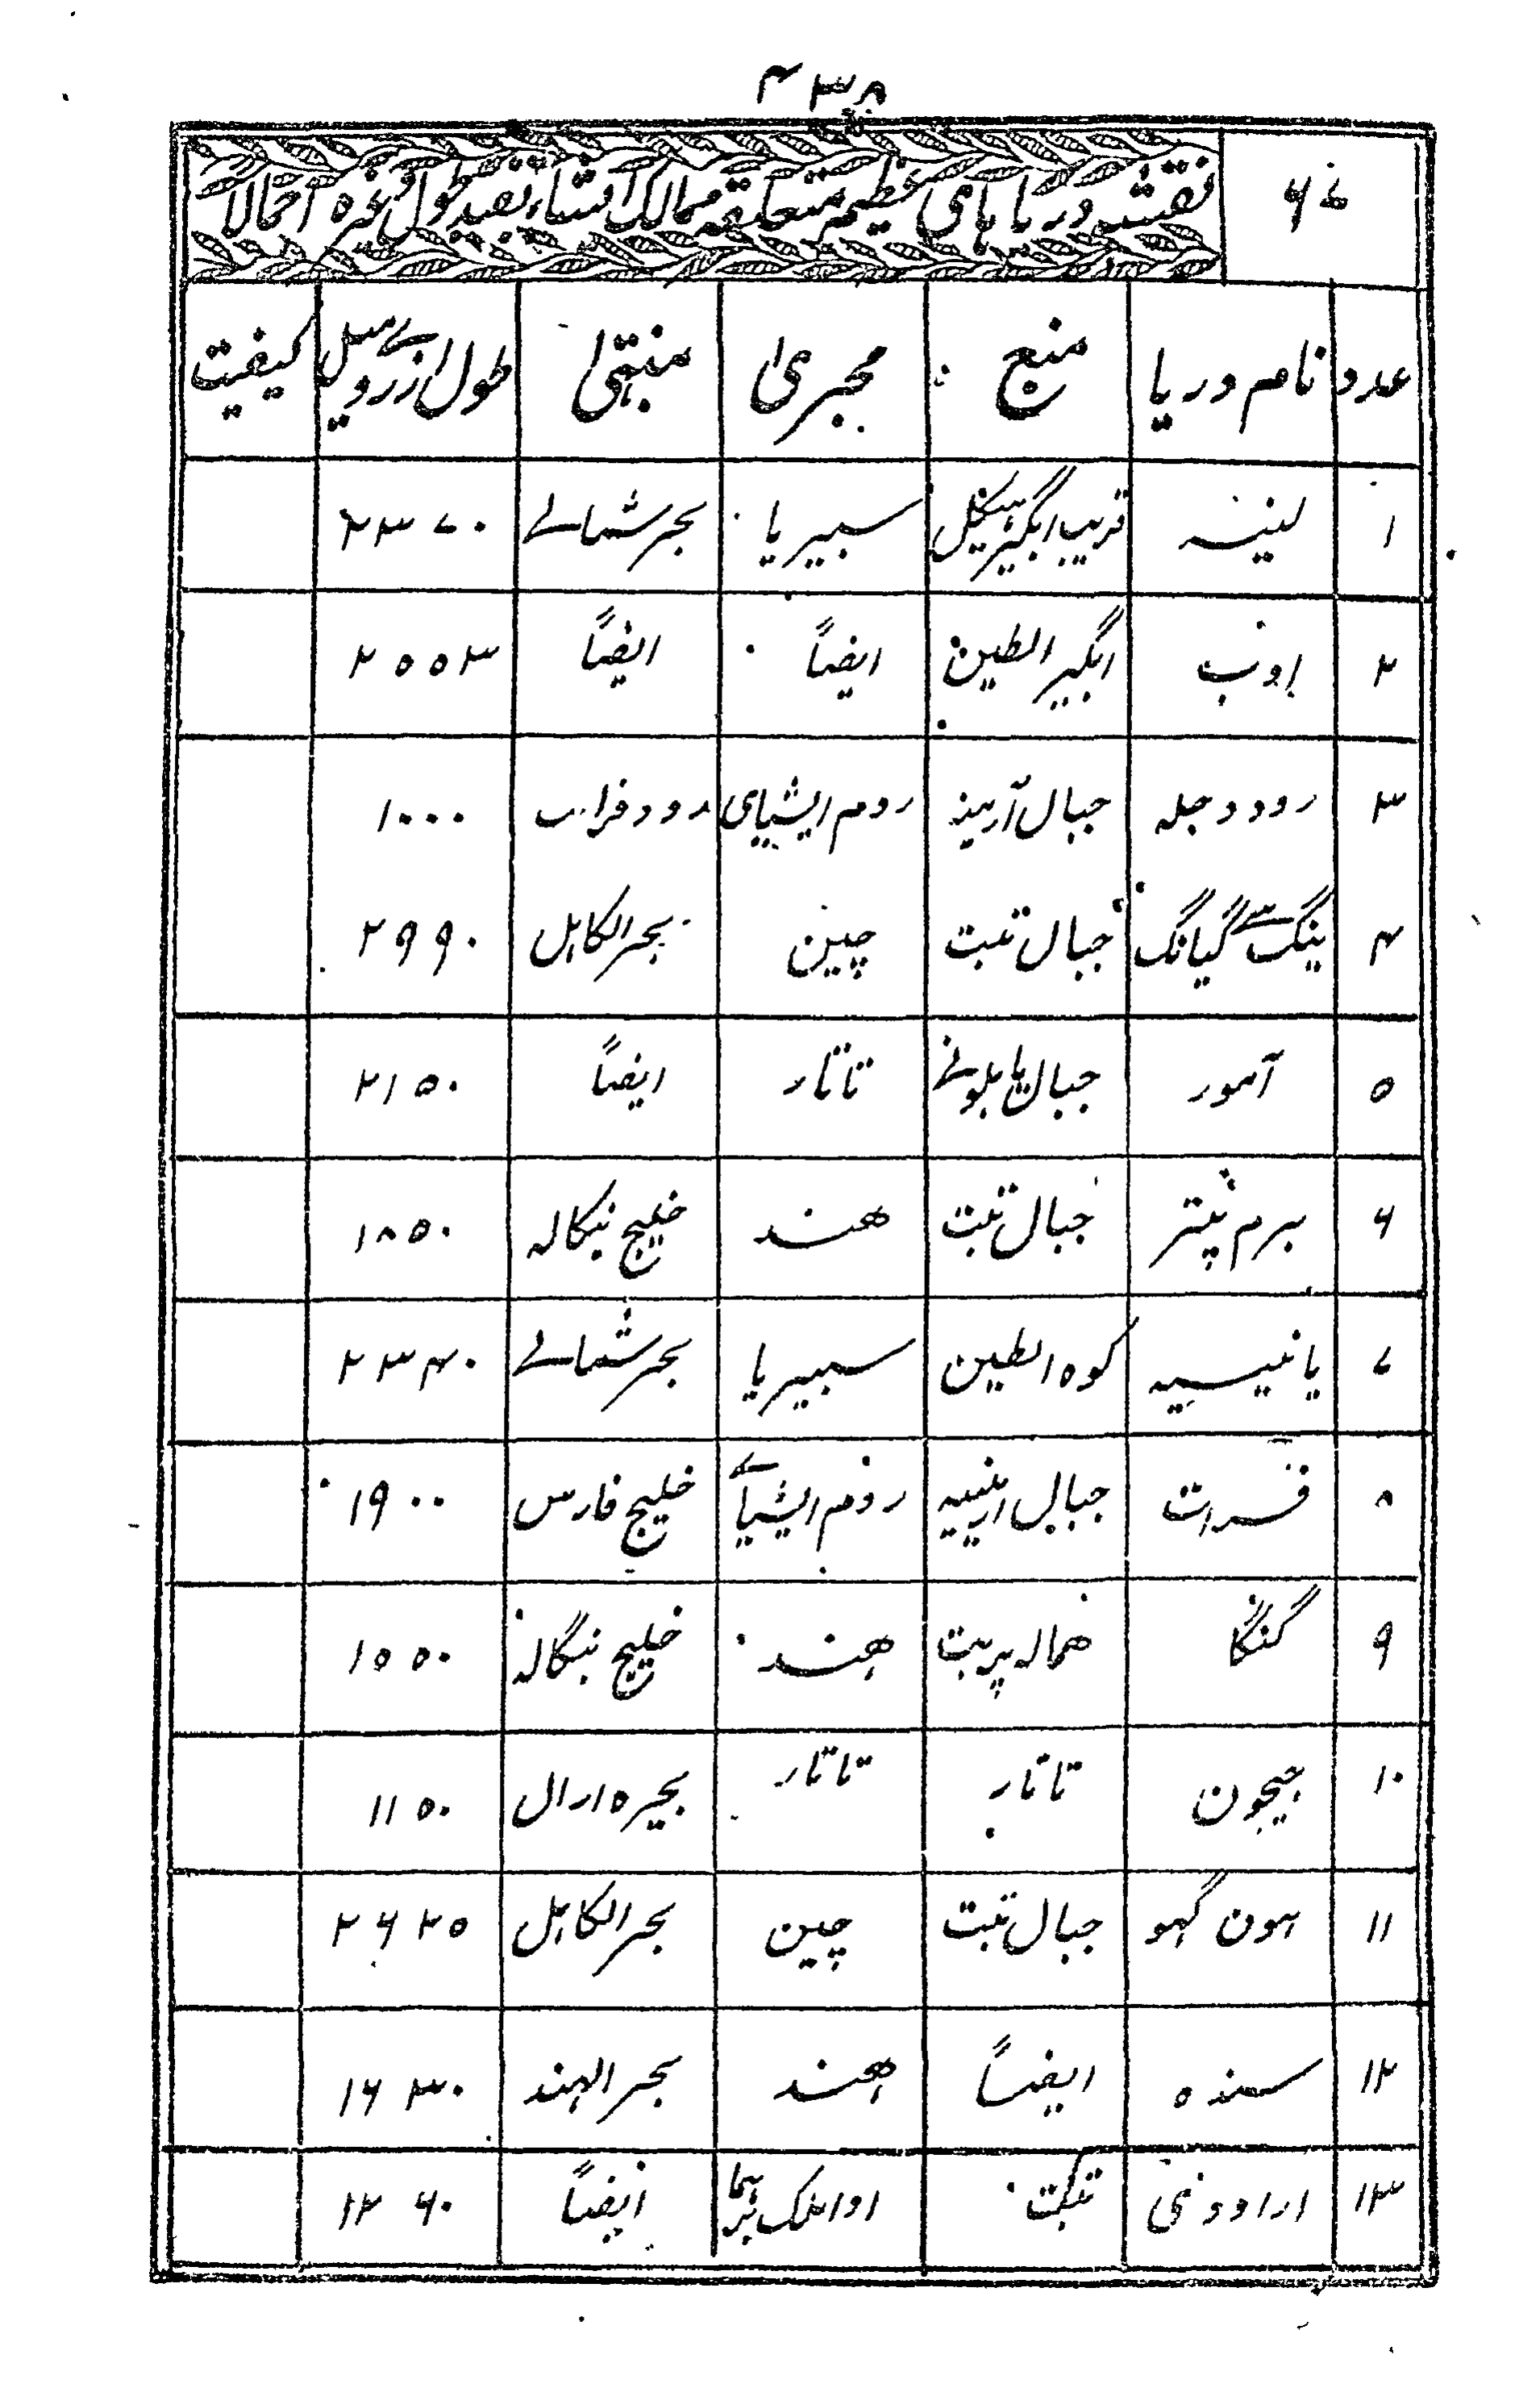 ۴۳۸
۶۷
نقشه دریاهای عظیمه متعلقه ممالک ایشیا بقید طول وغیره اجمالاً
عدد نام دریا منبع مجری منتهی طول از روی میل کیفیت
۱ لینه قریب ابگیر بیکل سیبریا بحر شمالے ۲۳۷۰
۲ اوب ابگیر الطین ایضاً ایضاً ۲۵۵۳
۳ رود دجله جبال آرمینه روم ایشیای رود فرات ۱۰۰۰
۴ ینگ سے گیانگ جبال تبت چین بحر الکاهل ۲۹۹۰
۵ آمور جبال یابلونے تاتار ایضاً ۲۱۵۰
۶ برم پتر جبال تبت هند خلیج بنگاله ۱۸۵۰
۷ یانیسیه کوه الطین سیبریا بحر شمالے ۲۳۴۰
۸ فرات جبال ارمینیه روم ایشیاے خلیج فارس ۱۹۰۰
۹ گنگا هماله پربت هند خلیج بنگاله ۱۵۵۰
۱۰ جیحون تاتار تاتار بحیره ارال ۱۱۵۰
۱۱ هون گهو جبال تبت چین بحر الکاهل ۲۶۲۵
۱۲ سنده ایضاً هند بحر الهند ۱۶۳۰
۱۳ ارا ووی تبت اوا ملک برهما ایضاً ۱۲۶۰